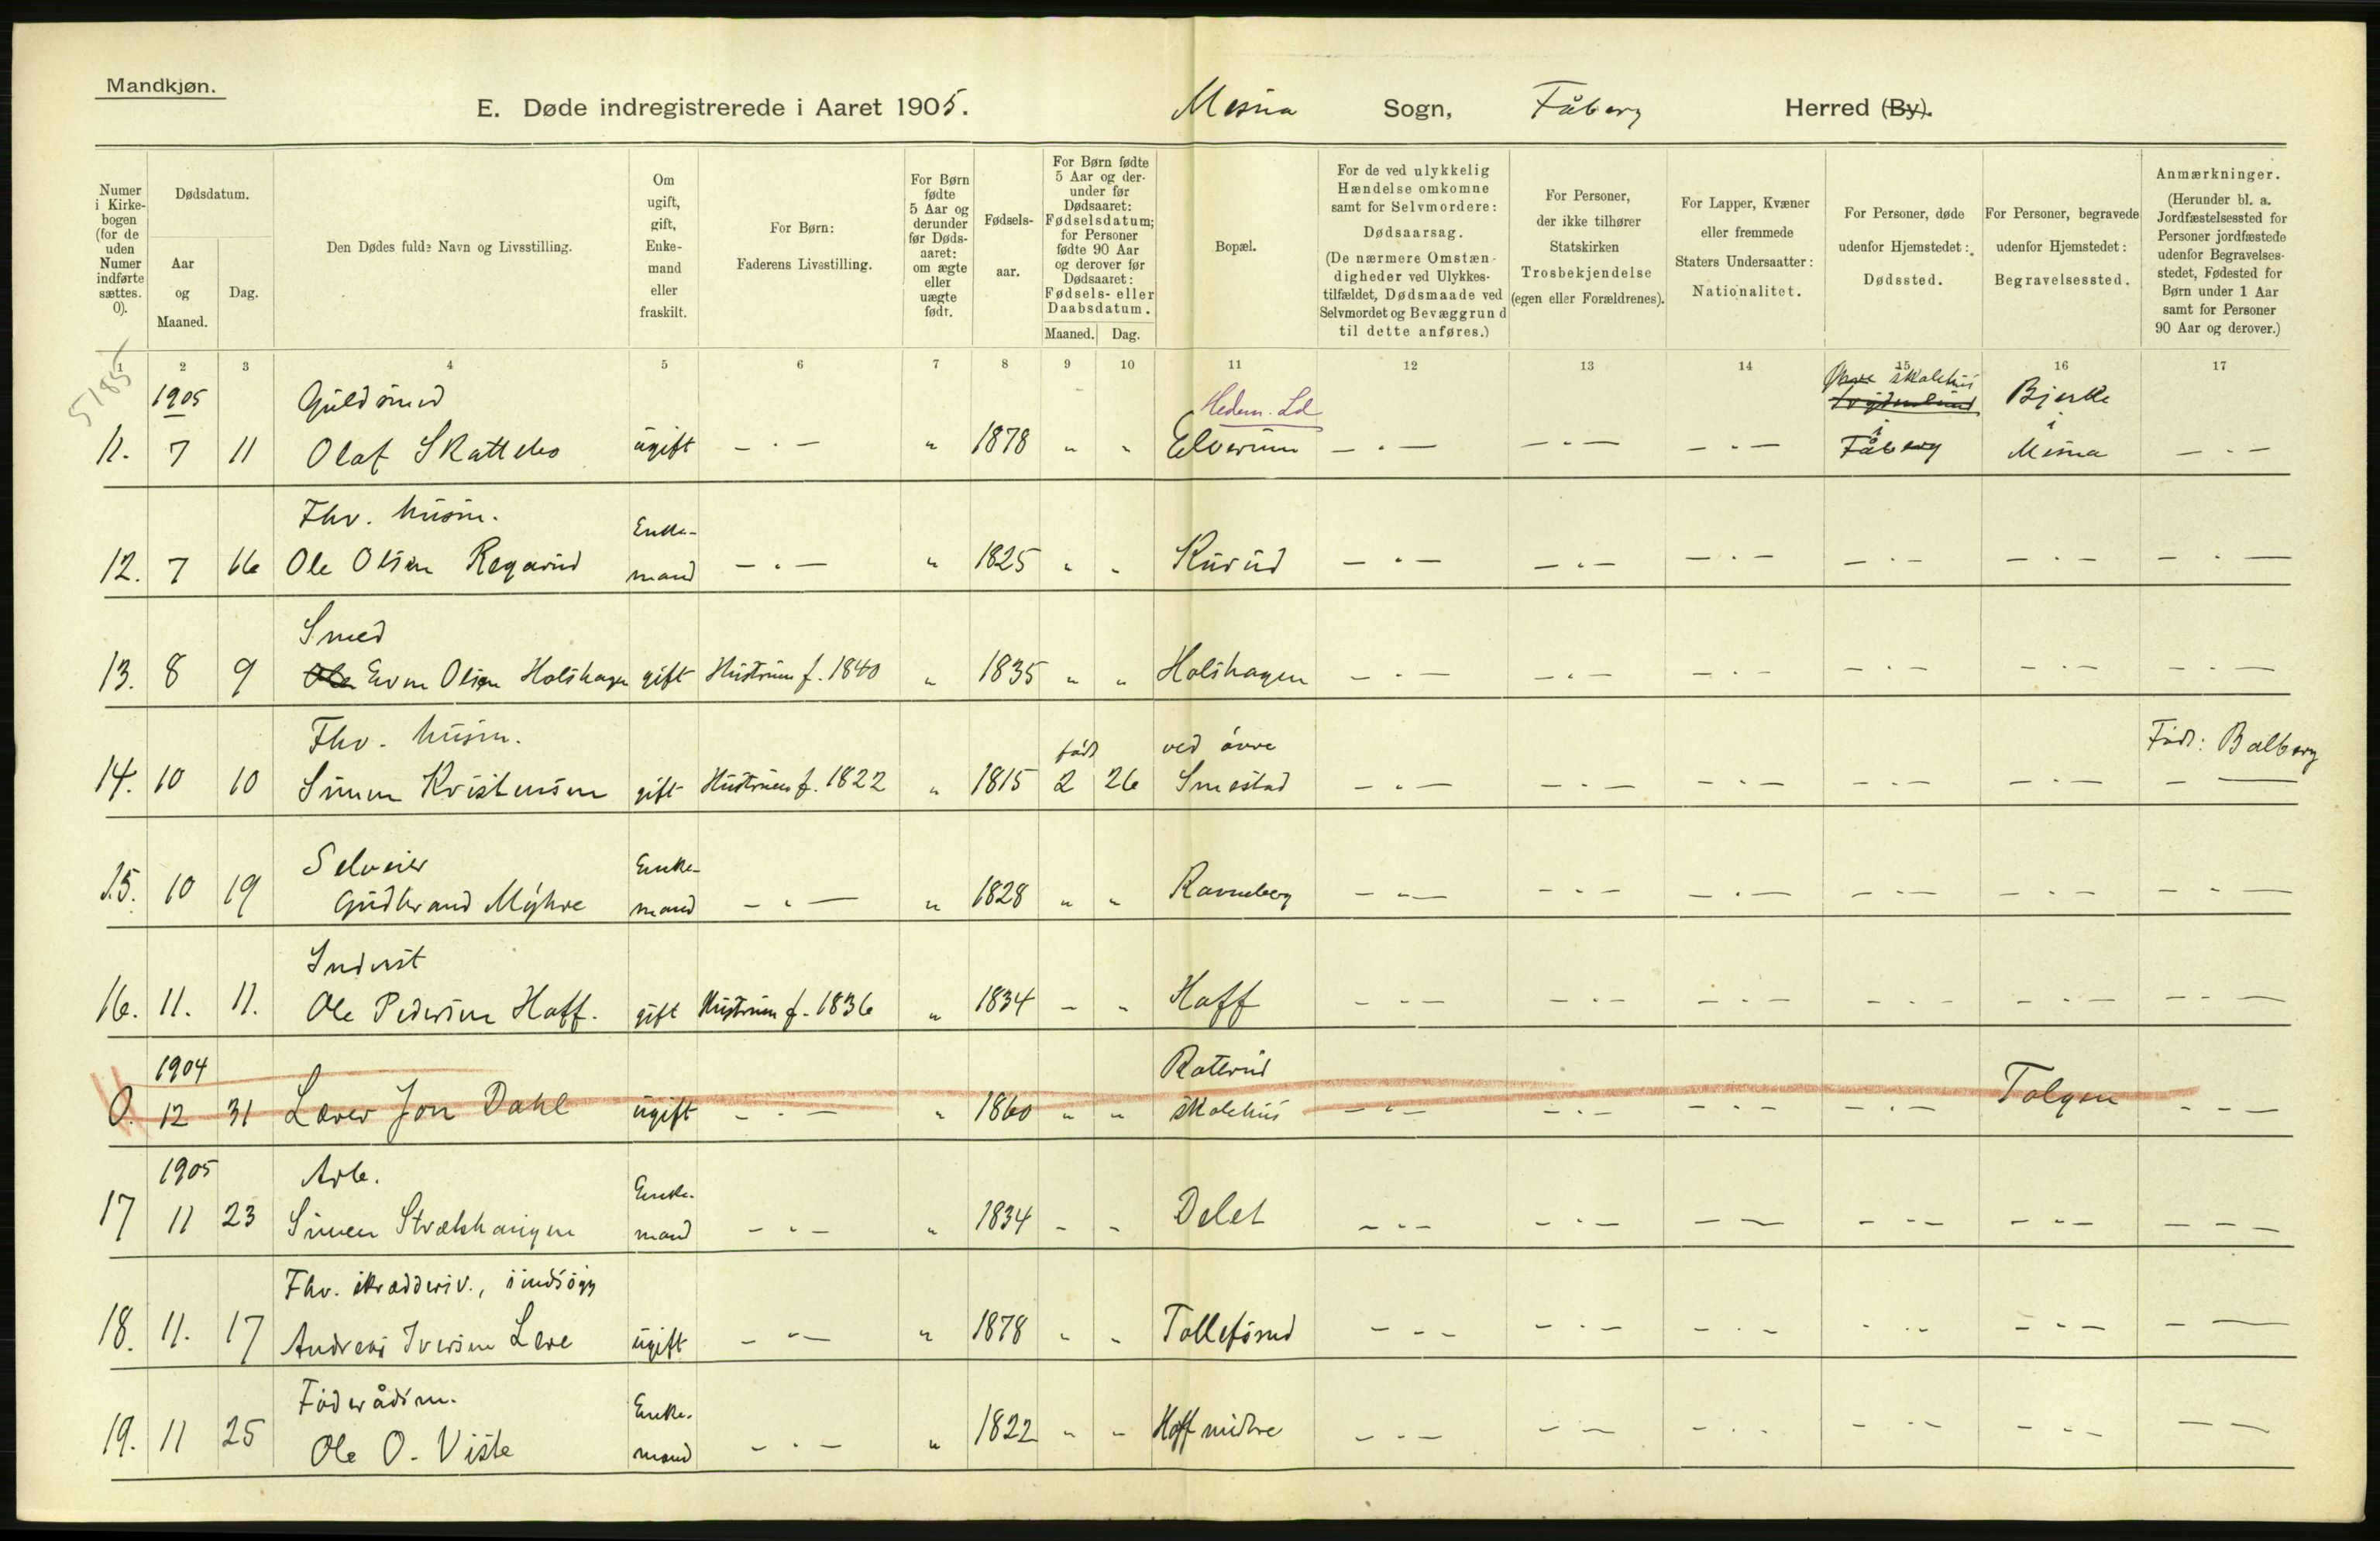 Mandkjøn.
E. Døde indregistrerede i Aaret 1905. Mesna Sogn, Fåberg Herred (By).
Numer i Kirke-bogen (for de uden Numer indførte sættes. 0).
Dødsdatum.
Aar og Maaned.
Dag.
Den Dødes fulde Navn og Livsstilling.
Om ugift, gift, Enke-mand eller fraskilt.
For Børn: Faderens Livsstilling.
For Børn fødte 5 Aar og derunder før Døds-aaret: om ægte eller uægte født.
Fødsels-aar.
For Børn fødte 5 Aar og der-under før Dødsaaret: Fødselsdatum; for Personer fødte 90 Aar og derover før Dødsaaret: Fødsels- eller Daabsdatum.
Maaned. Dag.
Bopæl.
For de ved ulykkelig Hændelse omkomne samt for Selvmordere: Dødsaarsag. (De nærmere Omstæn-digheder ved Ulykkes-tilfældet, Dødsmaade ved Selvmordet og Bevæggrund til dette anføres.)
For Personer, der ikke tilhører Statskirken Trosbekjendelse (egen eller Forældrenes).
For Lapper, Kvæner eller fremmede Staters Undersaatter: Nationalitet.
For Personer, døde udenfor Hjemstedet: Dødssted.
For Personer, begravede udenfor Hjemstedet: Begravelsessted.
Anmærkninger. (Herunder bl. a. Jordfæstelsessted for Personer jordfæstede udenfor Begravelses-stedet, Fødested for Børn under 1 Aar samt for Personer 90 Aar og derover.)
1 2 3 4 5 6 7 8 9 10 11 12 13 14 15 16 17
5185
1905 Guldsmed Hedem. Ld skolehus Bjerke
11. 7 11 Olaf Skattebo ugift - . - " 1878 " " Elverum - . - - . - - . - i Fåberg i Mesna - . -
Fhv. husm. Enke-
12. 7 16 Ole Olsen Regarud mand - . - " 1825 " " Rurud - . - - . - - . - - . - - . - - . -
Smed
13. 8 9 Ole Even Olsen Holshagen gift Hustruen f. 1840 " 1835 " " Holshagen - . - - . - - . - - . - - . - - . -
Fhv. husm. født ved øvre Født: Balberg
14. 10 10 Simen Kristensen gift Hustruen f. 1822 " 1815 2 26 Smestad - . - - . - - . - - . - - . - - -
Selveier Enke-
15. 10 19 Gudbrand Myhre mand - . - " 1828 " " Ravneberg - . - - . - - . - - . - - . - - . -
Inderst
16. 11. 11. Ole Pedersen Hoff. gift Hustruen f. 1836 " 1834 - " Hoff - . - - . - - . - - . - - . - - . -
1904 Rotterud
0. 12 31 Lærer Jon Dahl ugift - . - " 1860 " " skolehus - . - - . - - . - - . - Tolgen - - -
1905 Arb. Enke-
17 11 23 Simen Strækhaugen mand - . - " 1834 - - Delet - . - - . - - - - . - - . - - - -
Fhv. skræddersv., sindssyg
18. 11. 17 Andreas Iversen Løve ugift - . - " 1878 " " Tollefsrud - - - - . - - . - - . - - - - - -
Føderådsm. Enke-
19. 11 25 Ole O. Viste mand - . - " 1822 " " Hoff midtre - . - - . - - . - - . - - . - - -